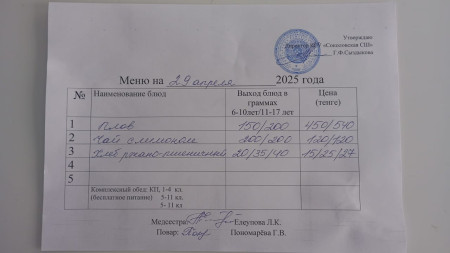 Утверждаю
Директор КГУ «Соколовская СШ»
Г.Ф.Сыздыкова
Меню на 29 апреля 2025 года
№ Наименование блюд Выход блюд в граммах 6-10лет/11-17 лет Цена (тенге)
1 Плов 150/200 450/540
2 Чай с лимоном 200/200 120/120
3 Хлеб ржано-пшеничный 20/35/40 15/25/27
4
5
Комплексный обед: КП, 1-4 кл.
(бесплатное питание) 5-11 кл.
5- 11 кл
Медсестра: Елеупова Л.К.
Повар: Пономарёва Г.В.